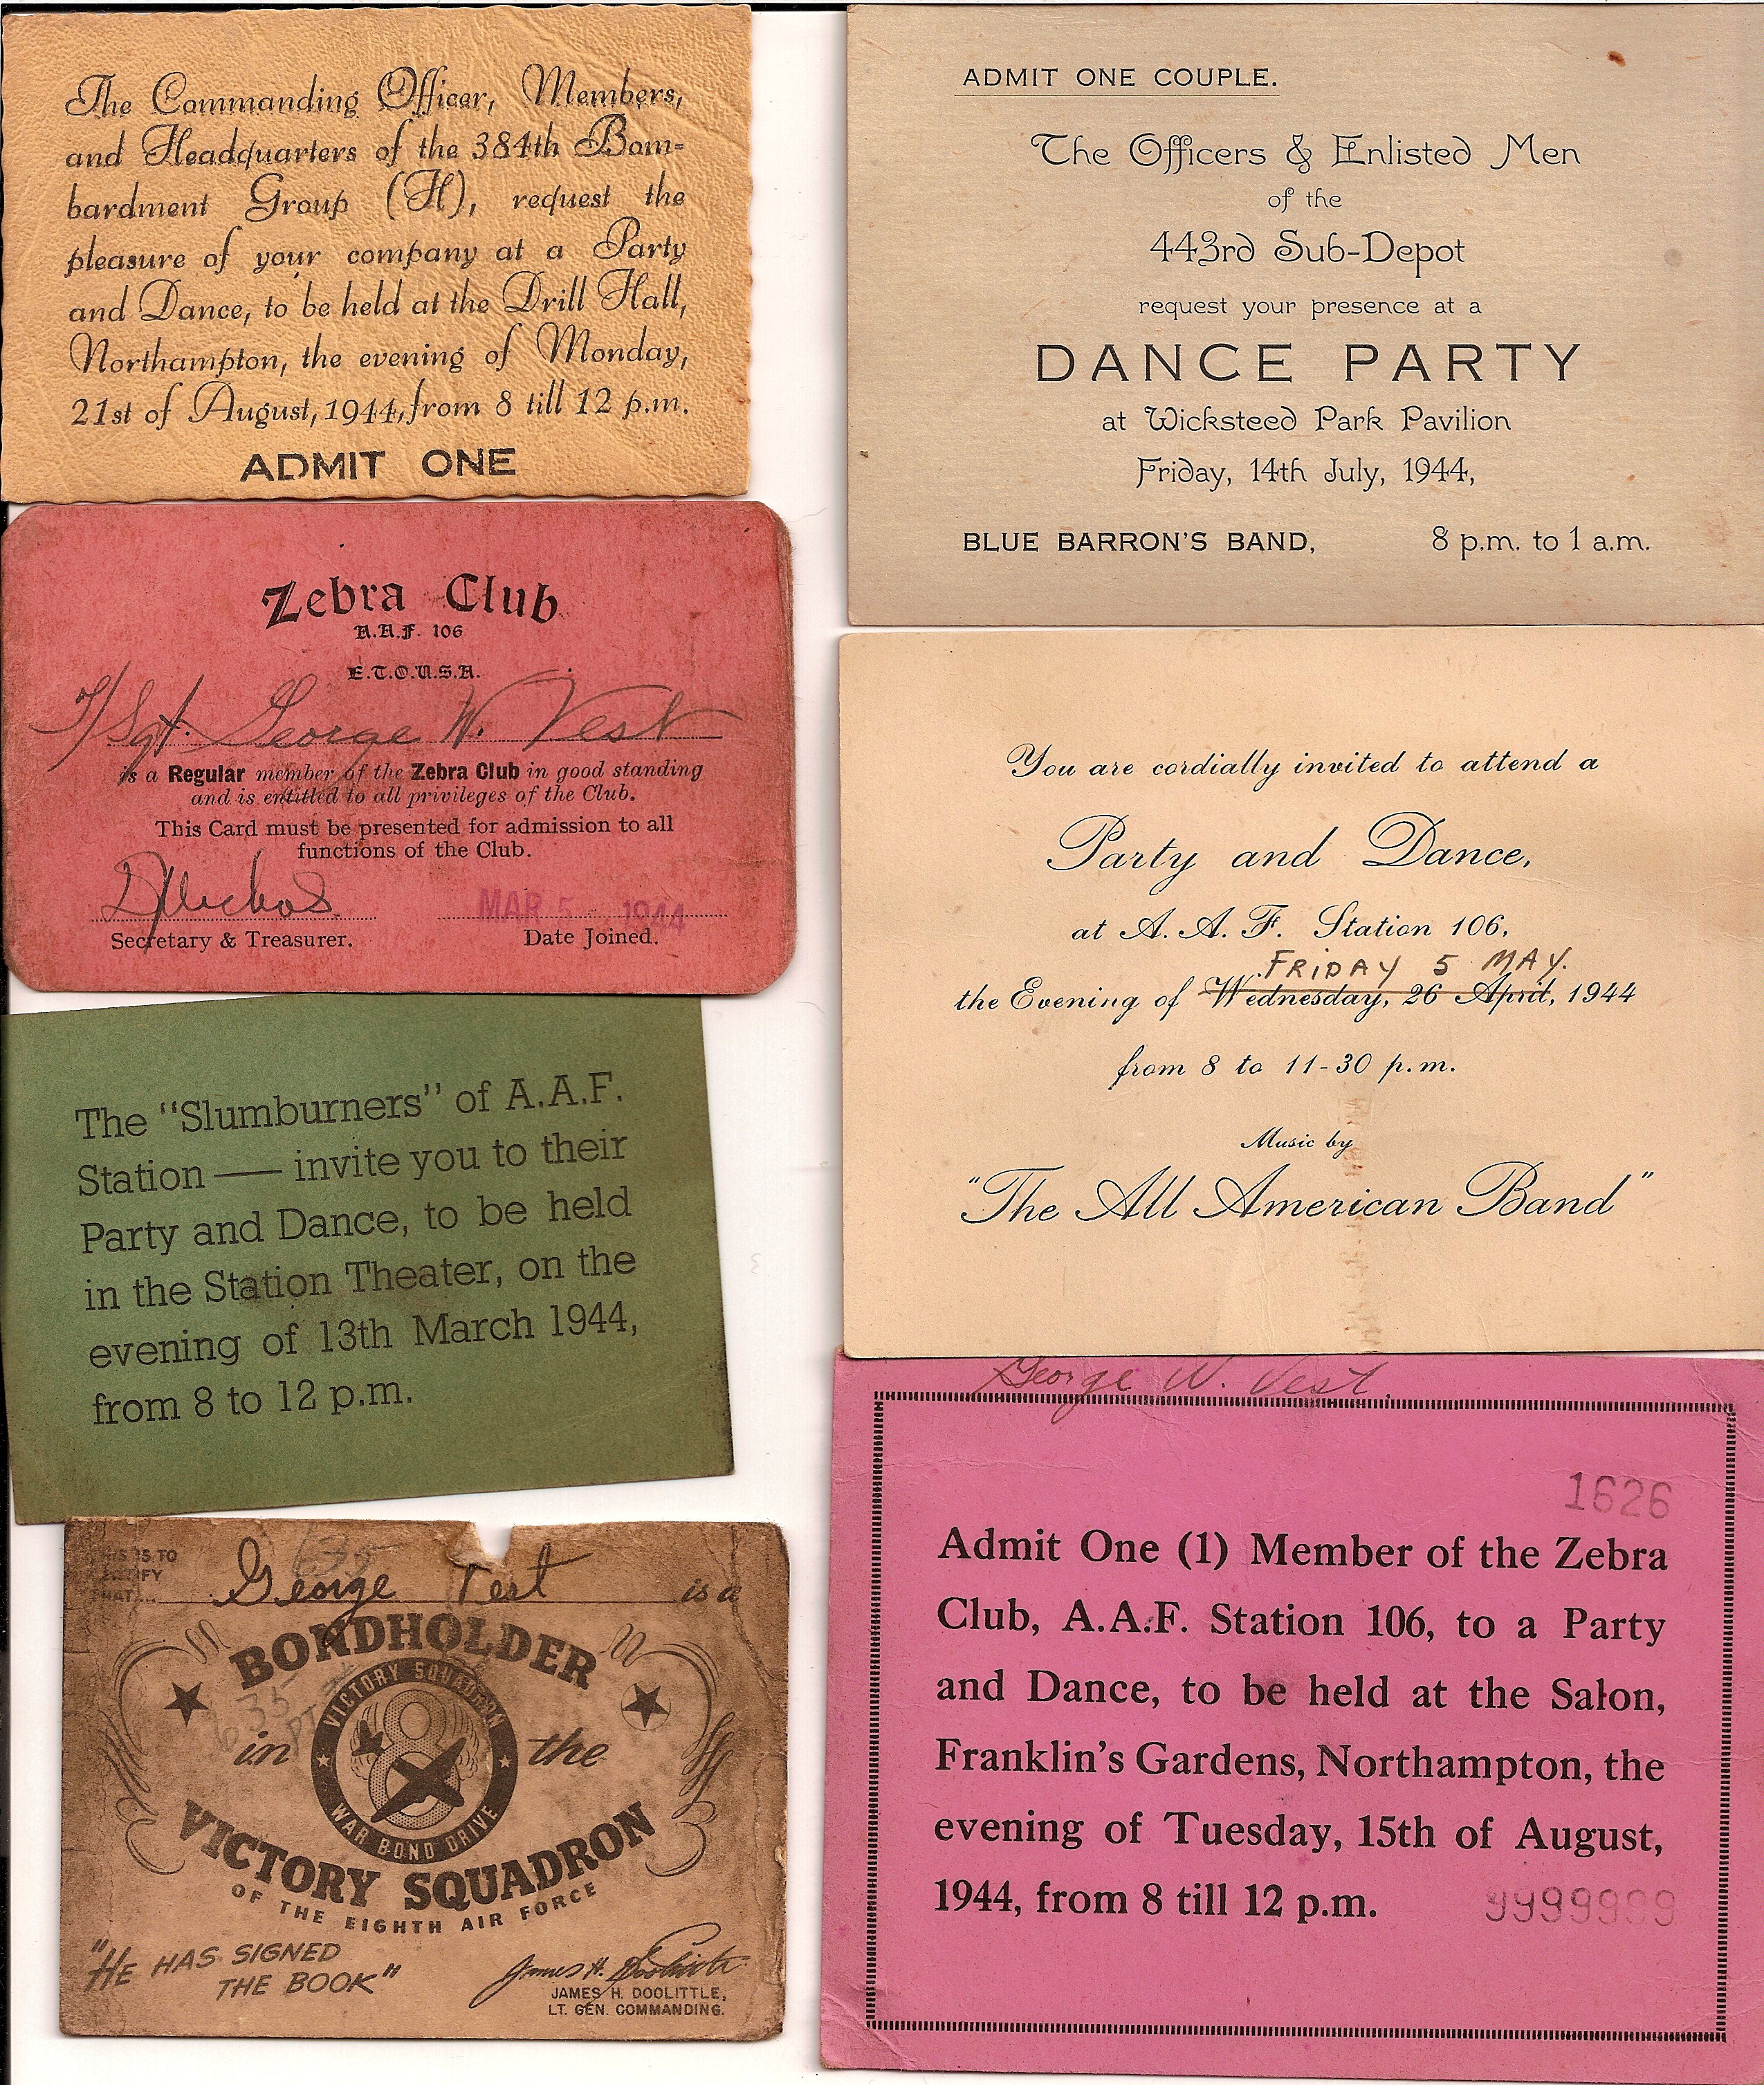 The Commanding Officer, Members,
and Headquarters of the 384th Bom-
bardment Group (H), request the
pleasure of your company at a Party
and Dance, to be held at the Drill Hall,
Northampton, the evening of Monday,
21st of August, 1944, from 8 till 12 p.m.
ADMIT ONE
Zebra Club
A.A.F. 106
E.T.O.U.S.A.
T/Sgt. George W. Vest
is a Regular member of the Zebra Club in good standing
and is entitled to all privileges of the Club.
This Card must be presented for admission to all
functions of the Club.
MAR 5 - 1944
Secretary & Treasurer. Date Joined.
The "Slumburners" of A.A.F.
Station — invite you to their
Party and Dance, to be held
in the Station Theater, on the
evening of 13th March 1944,
from 8 to 12 p.m.
THIS IS TO
CERTIFY
THAT...
George Vest is a
BONDHOLDER
in the
VICTORY SQUADRON
8
WAR BOND DRIVE
VICTORY SQUADRON
OF THE EIGHTH AIR FORCE
"HE HAS SIGNED
THE BOOK"
James H. Doolittle
JAMES H. DOOLITTLE,
LT. GEN. COMMANDING.
ADMIT ONE COUPLE.
The Officers & Enlisted Men
of the
443rd Sub-Depot
request your presence at a
DANCE PARTY
at Wicksteed Park Pavilion
Friday, 14th July, 1944,
BLUE BARRON'S BAND, 8 p.m. to 1 a.m.
You are cordially invited to attend a
Party and Dance,
at A. A. F. Station 106,
FRIDAY 5 MAY.
the Evening of Wednesday, 26 April, 1944
from 8 to 11-30 p.m.
Music by
"The All American Band"
George W. Vest.
1626
Admit One (1) Member of the Zebra
Club, A.A.F. Station 106, to a Party
and Dance, to be held at the Salon,
Franklin's Gardens, Northampton, the
evening of Tuesday, 15th of August,
1944, from 8 till 12 p.m. 9999999